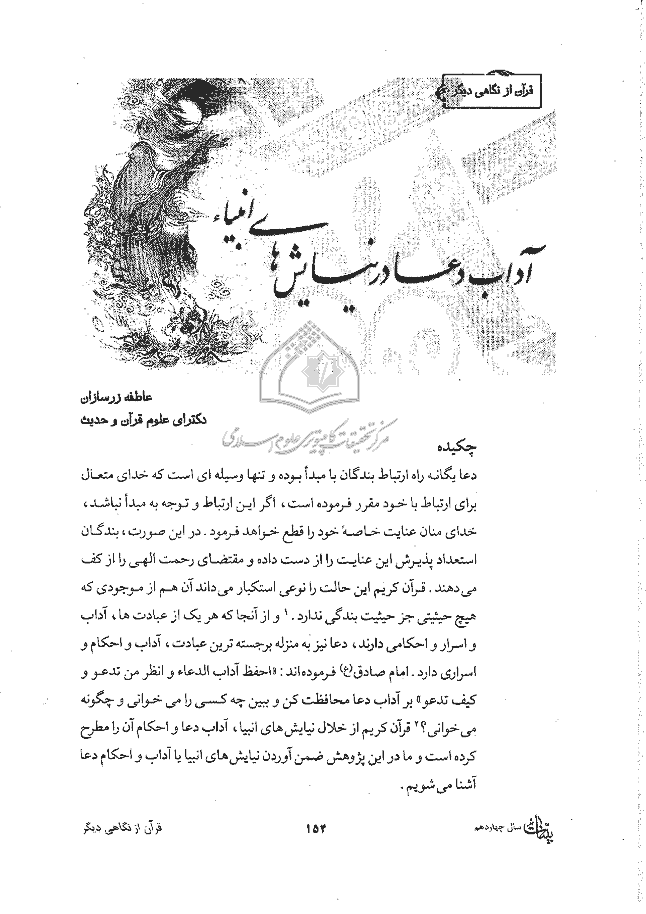 قرآن از نگاهی دیگر
آداب دعا در نیایش‌های انبیاء
عاطفه زرسازان
دکترای علوم قرآن و حدیث
مرکز تحقیقات کامپیوتری علوم اسلامی
چکیده
دعا یگانه راه ارتباط بندگان با مبدأ بوده و تنها وسیله ای است که خدای متعال
برای ارتباط با خود مقرر فرموده است، اگر این ارتباط و توجه به مبدأ نباشد،
خدای منان عنایت خاصهٔ خود را قطع خواهد فرمود. در این صورت، بندگان
استعداد پذیرش این عنایت را از دست داده و مقتضای رحمت الهی را از کف
می‌دهند. قرآن کریم این حالت را نوعی استکبار می‌داند آن هم از موجودی که
هیچ حیثیتی جز حیثیت بندگی ندارد.۱ و از آنجا که هر یک از عبادت ها، آداب
و اسرار و احکامی دارند، دعا نیز به منزله برجسته ترین عبادت، آداب و احکام و
اسراری دارد. امام صادق(ع) فرموده‌اند: «احفظ آداب الدعاء و انظر من تدعو و
کیف تدعو» بر آداب دعا محافظت کن و ببین چه کسی را می خوانی و چگونه
می‌خوانی؟۲ قرآن کریم از خلال نیایش های انبیا، آداب دعا و احکام آن را مطرح
کرده است و ما در این پژوهش ضمن آوردن نیایش‌های انبیا با آداب و احکام دعا
آشنا می شویم.
بینات سال چهاردهم
۱۵۴
قرآن از نگاهی دیگر